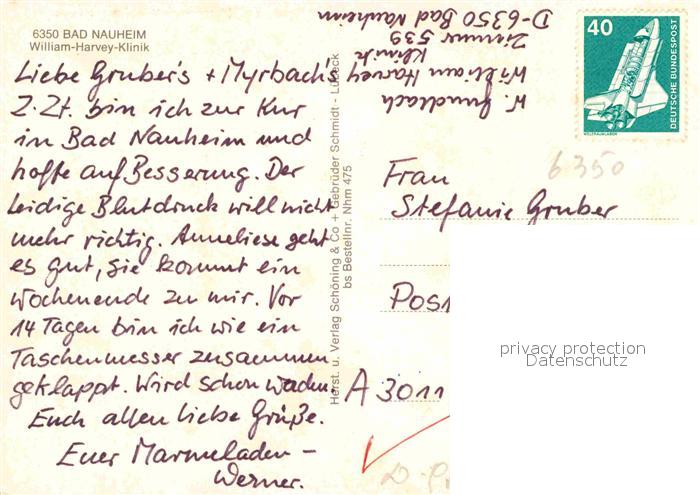 6350 BAD NAUHEIM
William-Harvey-Klinik
Liebe Gruber's + Myrbachs
Z. Zt. bin ich zur Kur
in Bad Nauheim und
hoffe auf Besserung. Der
leidige Blutdruck will nicht
mehr richtig. Anneliese geht
es gut, sie kommt ein
Wochenende zu mir. Vor
14 Tagen bin ich wie ein
Taschenmesser zusammen
geklappt. Wird schon werden.
Euch allen liebe Grüße.
Euer Marmeladen-
Werner.
Herst. u. Verlag Schöning & Co + Gebrüder Schmidt - Lübeck
bs Bestellnr. Nhm 475
W. Gundlach
William Harvey
Klinik
Zimmer 539
D-6350 Bad Nauheim
40
DEUTSCHE BUNDESPOST
WELTRAUMLABOR
6350
Frau
Stefanie Gruber
Post
A 3011
privacy protection
Datenschutz